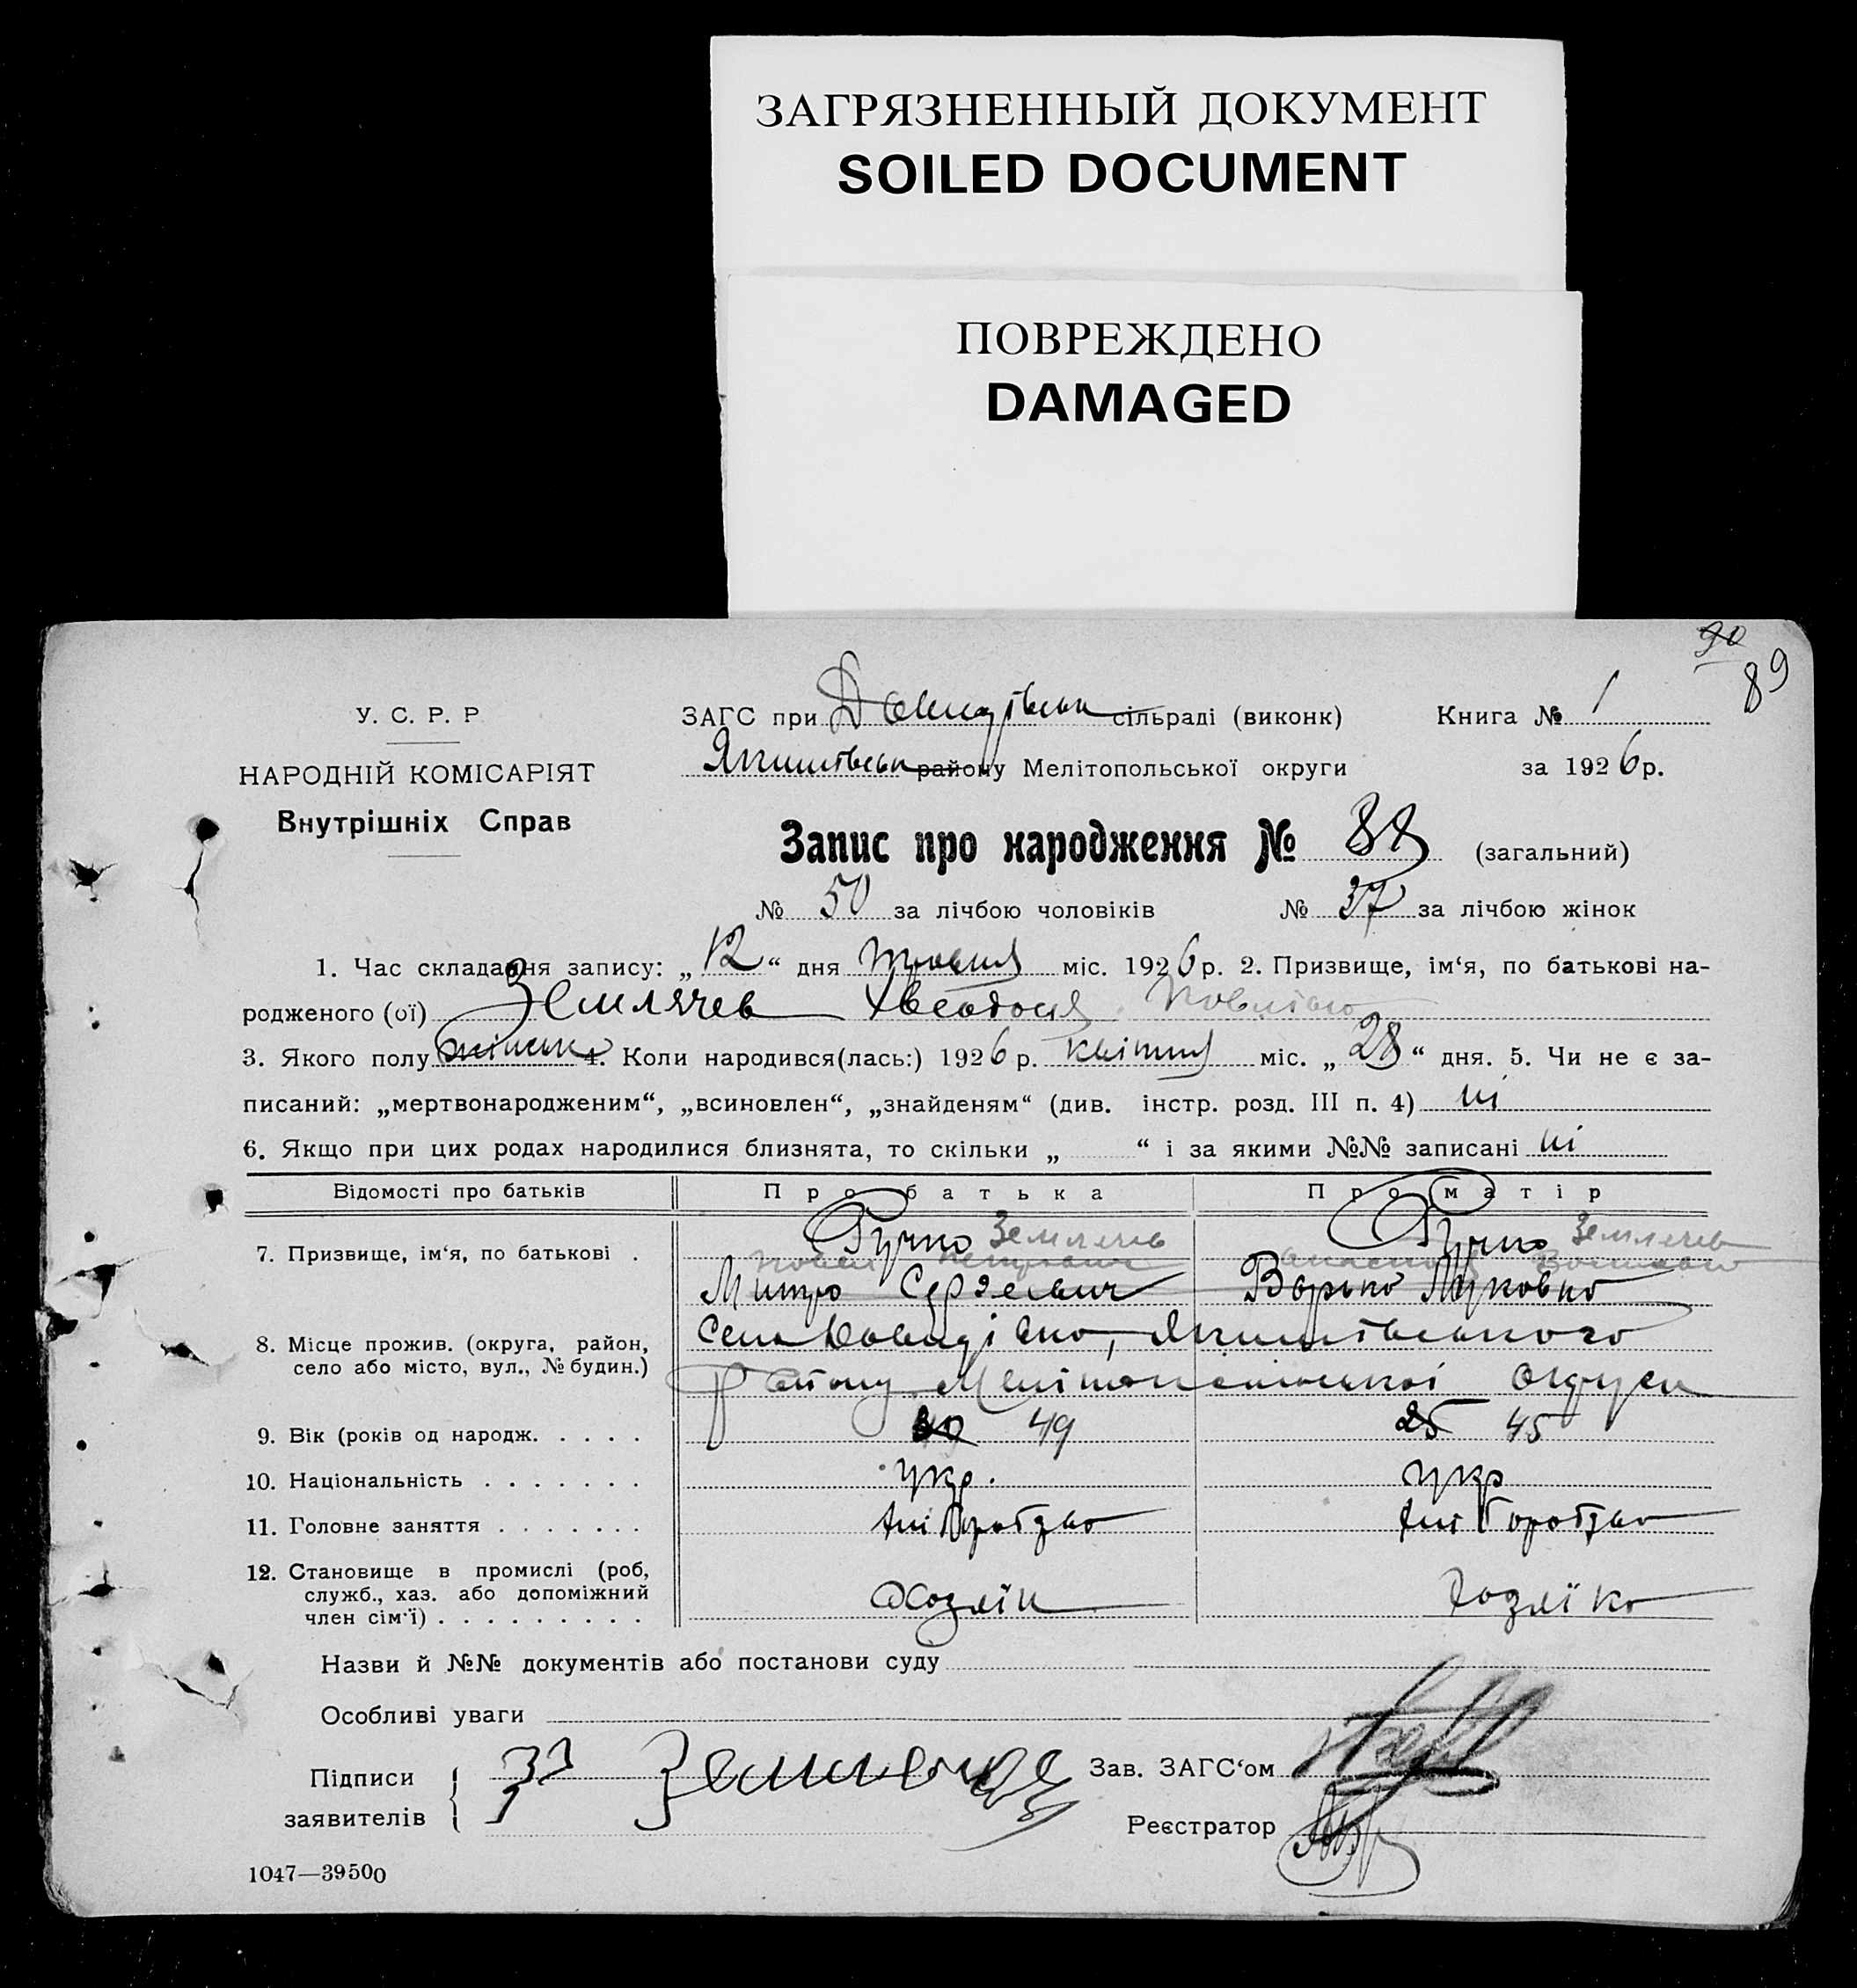 ЗАГРЯЗНЕННЫЙ ДОКУМЕНТ
SOILED DOCUMENT
ПОВРЕЖДЕНО
DAMAGED
90
89
У. С. Р. Р
НАРОДНІЙ КОМІСАРІЯТ
Внутрішніх Справ
ЗАГС при Давидівськ сільраді (виконк) Книга № 1
Якимівськ району Мелітопольської округи за 1926 р.
Запис про народження № 88 (загальний)
№ 50 за лічбою чоловіків № 37 за лічбою жінок
1. Час складання запису: „12“ дня травня міс. 1926 р. 2. Призвище, ім‘я, по батькові на-
родженого (ої) Землячев Хвеодося Повлівно
3. Якого полу жіночк 4. Коли народився(лась:) 1926 р. квітня міс. „28“ дня. 5. Чи не є за-
писаний: „мертвонародженим“, „всиновлен“, „знайденям“ (див. інстр. розд. III п. 4) ні
6. Якщо при цих родах народилися близнята, то скільки „ “ і за якими №№ записані ні
Відомості про батьків Про батька Про матір
7. Призвище, ім‘я, по батькові . Гучко Землячев Гучко Землячев
Митро Сергеевич Варько Луковно
8. Місце прожив. (округа, район, село або місто, вул., № будин.) Село Давидівно, Якимівського
району Мелітопольської округи
9. Вік (років од народж. . . . . 30 49 25 45
10. Національність . . . . . . . укр. укр
11. Головне заняття . . . . . . . хліборобтво хліборобтво
12. Становище в промислі (роб, служб., хаз. або допоміжний член сім‘ї) . . . . . . . . . Хозяїн хозяїко
Назви й №№ документів або постанови суду
Особливі уваги
Підписи заявителів Зав. ЗАГС‘ом
Реєстратор
1047—39500